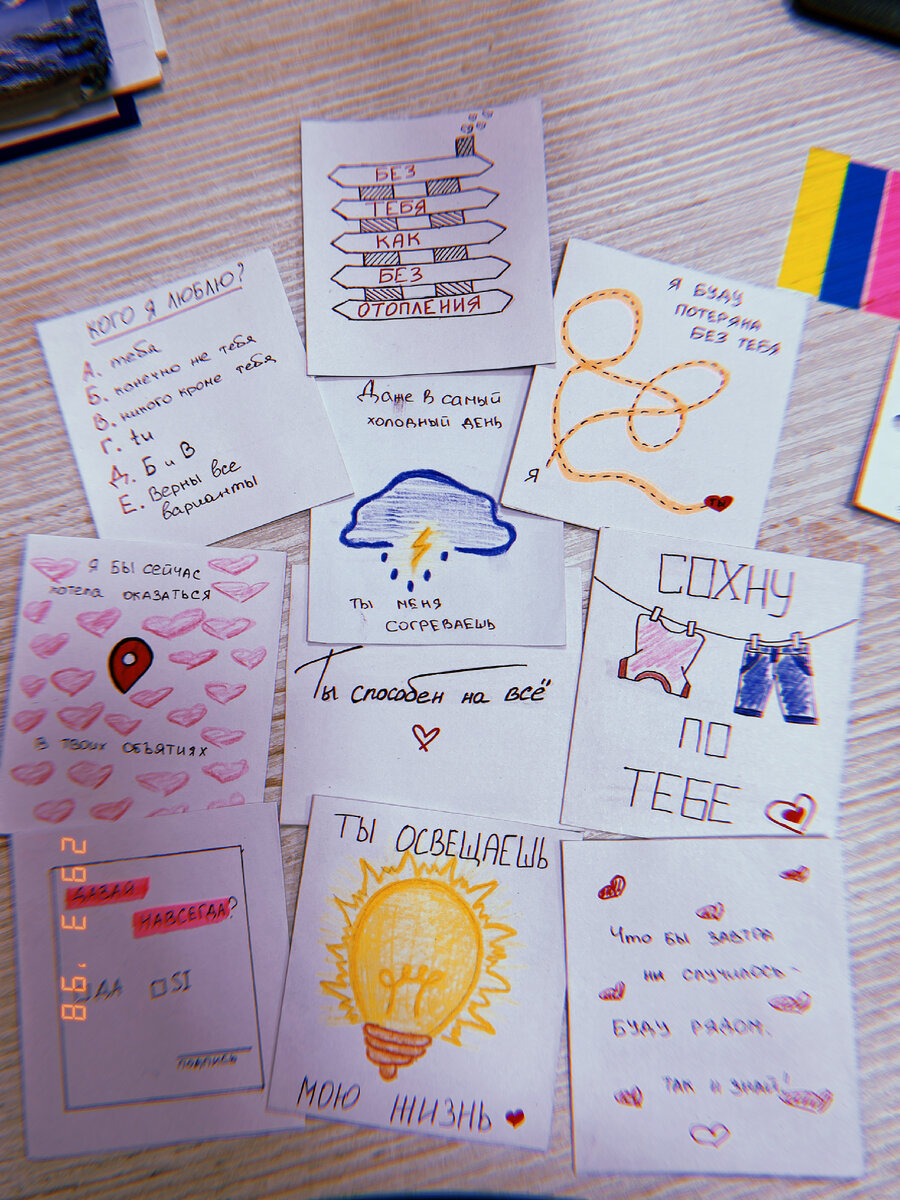 БЕЗ
ТЕБЯ
КАК
БЕЗ
ОТОПЛЕНИЯ
КОГО Я ЛЮБЛЮ?
А. тебя
Б. конечно же тебя
В. никого кроме тебя
Г. tu
Д. Б и В
Е. Верны все
варианты
Даже в самый
холодный день
ТЫ МЕНЯ
СОГРЕВАЕШЬ
Я БУДУ
ПОТЕРЯНА
БЕЗ ТЕБЯ
Я
ТЫ
Я БЫ СЕЙЧАС
хотела оказаться
В ТВОИХ ОБЪЯТИЯХ
Ты способен на всё
СОХНУ
ПО
ТЕБЕ
ДАВАЙ
НАВСЕГДА?
ДА □ SI
подпись
29 3 '98
ТЫ ОСВЕЩАЕШЬ
МОЮ ЖИЗНЬ
Что бы завтра
ни случилось -
БУДУ РЯДОМ.
ТАК И ЗНАЙ!